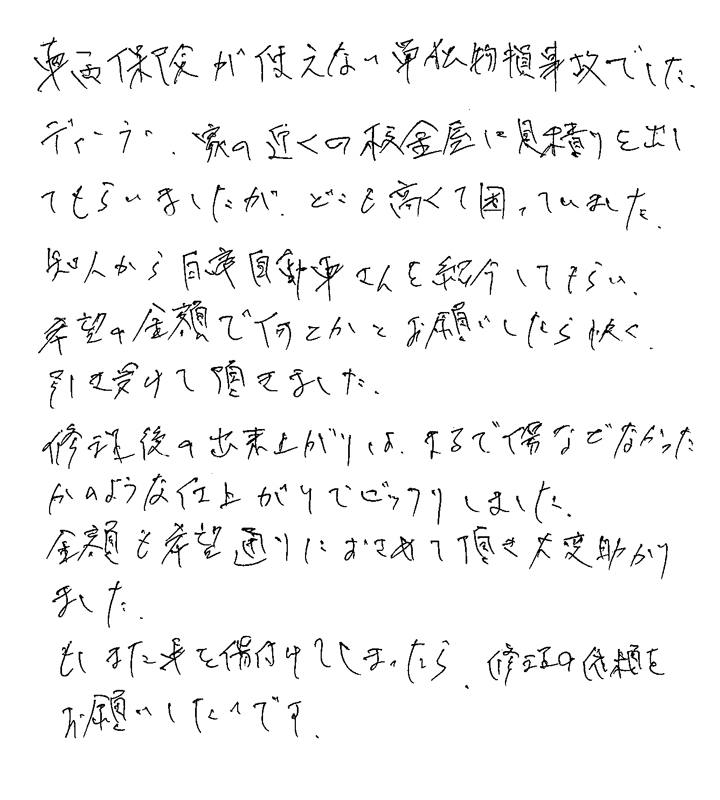 車両保険が使えない単独物損事故でした。
ディーラー、家の近くの板金屋に見積りを出し
てもらいましたが、どこも高くて困っていました。
知人から自車自動車さんを紹介してもらい、
希望の金額で何とかとお願いしたら快く、
引き受けて頂きました。
修理後の出来上がりは、まるで傷などなかった
かのような仕上がりでビックリしました。
金額も希望通りにおさめて頂き大変助かり
ました。
もしまた車を傷付けてしまったら、修理の依頼を
お願いしたいです。